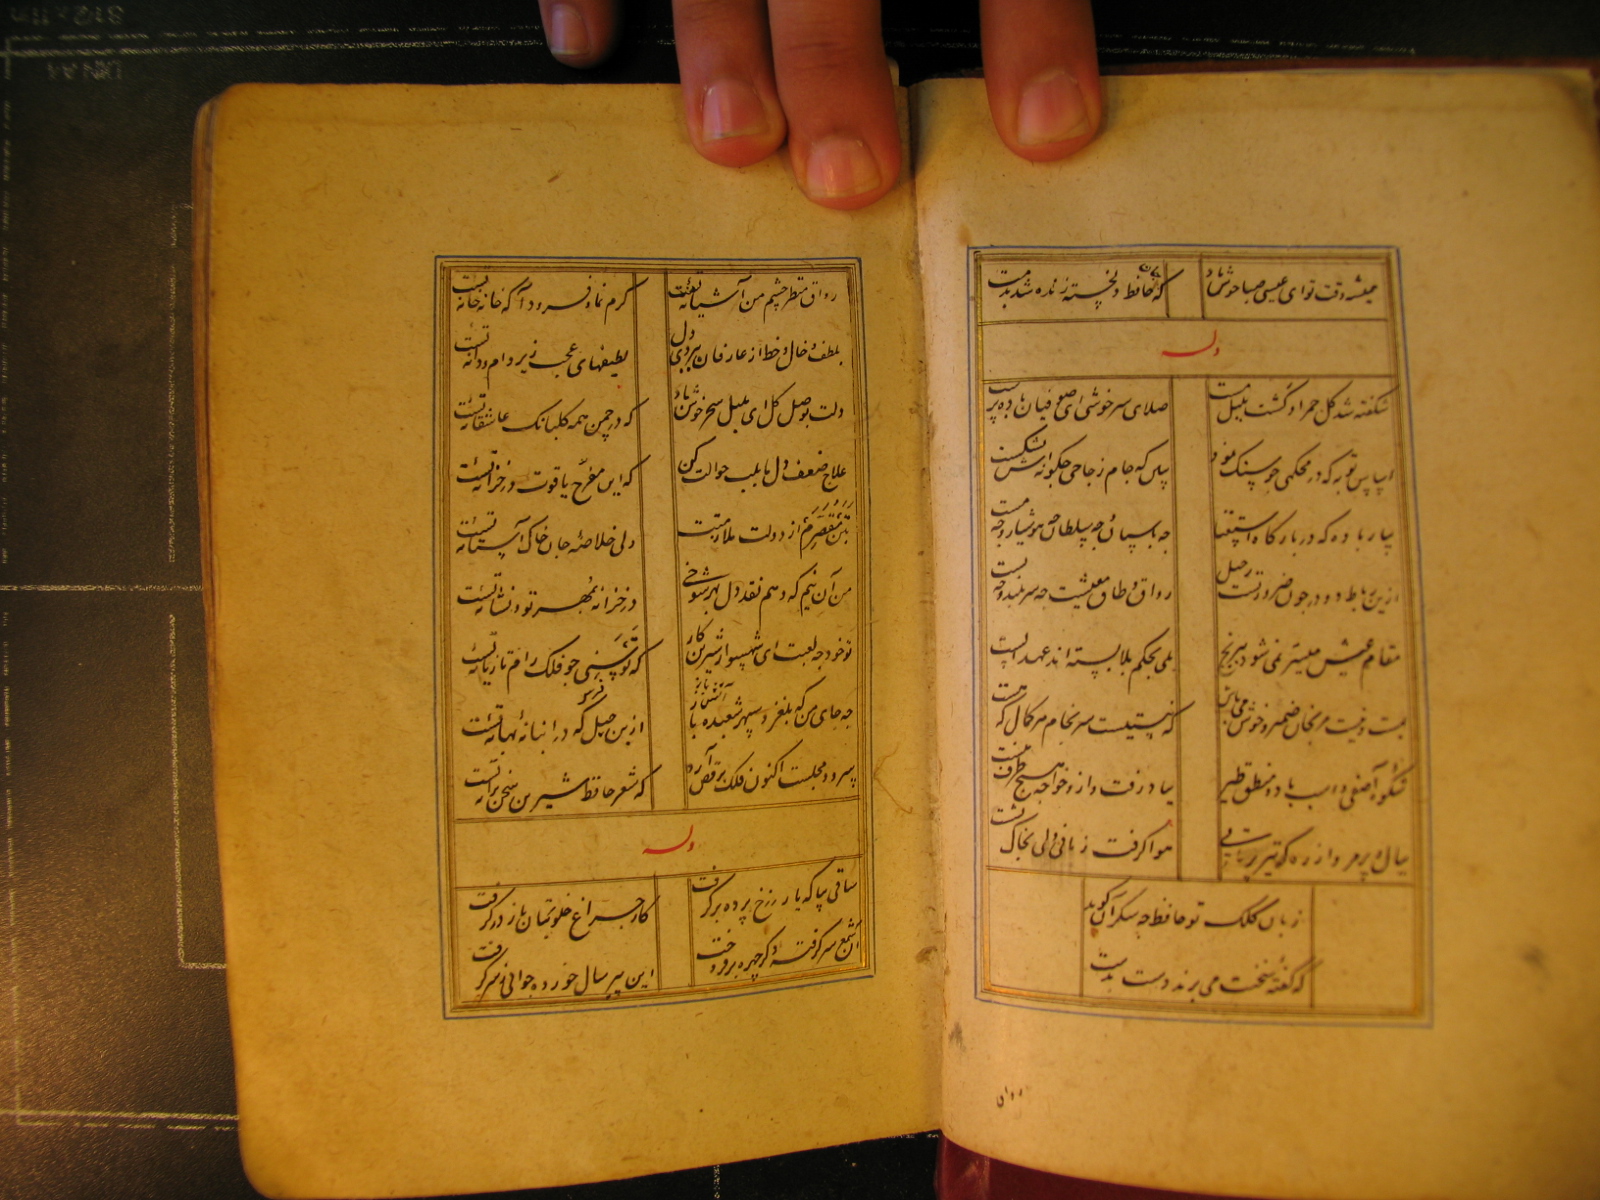 همیشه وقت تو ای عیسی صبا خوش باد که جان حافظ دلخسته زنده شد بدمت
وله
شکفته شد کل حمرا و کشت بلبل مست صلای سرخوشی ای صوفیان باده پرست
اساس توبه که در محکمی چو سنک نمود ببین که جام زجاجی چکونه اش بشکست
بیار باده که در بارکاه استغنا چه پاسبان و چه سلطان چه هوشیار و چه مست
ازین رباط دو در چون ضرورتست رحیل رواق و طاق معیشت چه سر بلند و چه پست
مقام عیش میسر نمی شود بی رنج بلی بحکم بلا بسته اند عهد الست
بهست و نیست مرنجان ضمیر و خوش می باش که نیستیست سرنجام هر کمال که هست
شکوه آصفی و اسب باد و منطق طیر بباد رفت و ازو خواجه هیچ طرف نبست
ببال و پر مرو از ره که تیر پرتابی هوا کرفت زمانی ولی بخاک نشست
زبان کلک تو حافظ چه شکر آن کوید
که کفته سخنت می برند دست بدست
روان
رواق منظر چشم من آشیانه تست کرم نما و فرود آ که خانه خانه تست
بلطف خال و خط از عارفان ببردی دل لطیفهای عجب زیر دام و دانه تست
دلت بوصل کل ای بلبل سحر خوش باد که در چمن همه کلبانک عاشقانه تست
علاج ضعف دل ما بلب حوالت کن که این مفرح یاقوت در خزانه تست
بتن مقصرم از دولت ملازمتت ولی خلاصه جان خاک آستانه تست
من آن نیم که دهم نقد دل بهر شوخی در خزانه بمهر تو و نشانه تست
تو خود چه لعبتی ای شهسوار شیرین کار که توسنی چو فلک رام تازیانه تست
چه جای من که بلغزد سپهر شعبده باز ازین حیل که در انبانه بهانه تست
سرود مجلست اکنون فلک برقص آرد که شعر حافظ شیرین سخن ترانه تست
وله
ساقی بیا که یار ز رخ پرده بر کرفت کار چراغ خلوتیان باز در کرفت
آن شمع سر کرفته دکر چهره بر فروخت این پیر سال خورده جوانی ز سر کرفت